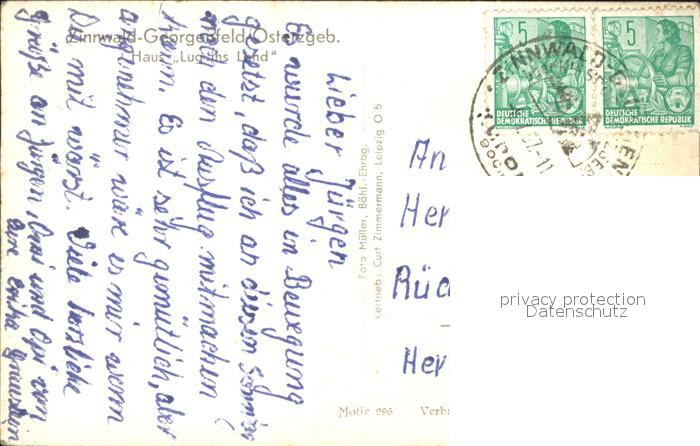 Zinnwald-Georgenfeld/Osterzgeb.
Haus „Lug ins Land"
Lieber Jürgen
Es wurde alles in Bewegung
gesetzt, daß ich an diesem Sonntag
noch den Ausflug mitmachen
kann. Es ist sehr gemütlich, aber
angenehmer wäre es mir wenn
Du mit wärst. Viele herzliche
Grüße an Jürgen, Omi und Opi von
eure Erika
Foto Müller, Böhl.-Ehrbg.
Vertrieb: Curt Zimmermann, Leipzig O 5
Motiv 296
5
DEUTSCHE
DEMOKRATISCHE REPUBLIK
5
DEUTSCHE
DEMOKRATISCHE REPUBLIK
ZINNWALD-G
An
Her
Rüd
Her
privacy protection
Datenschutz